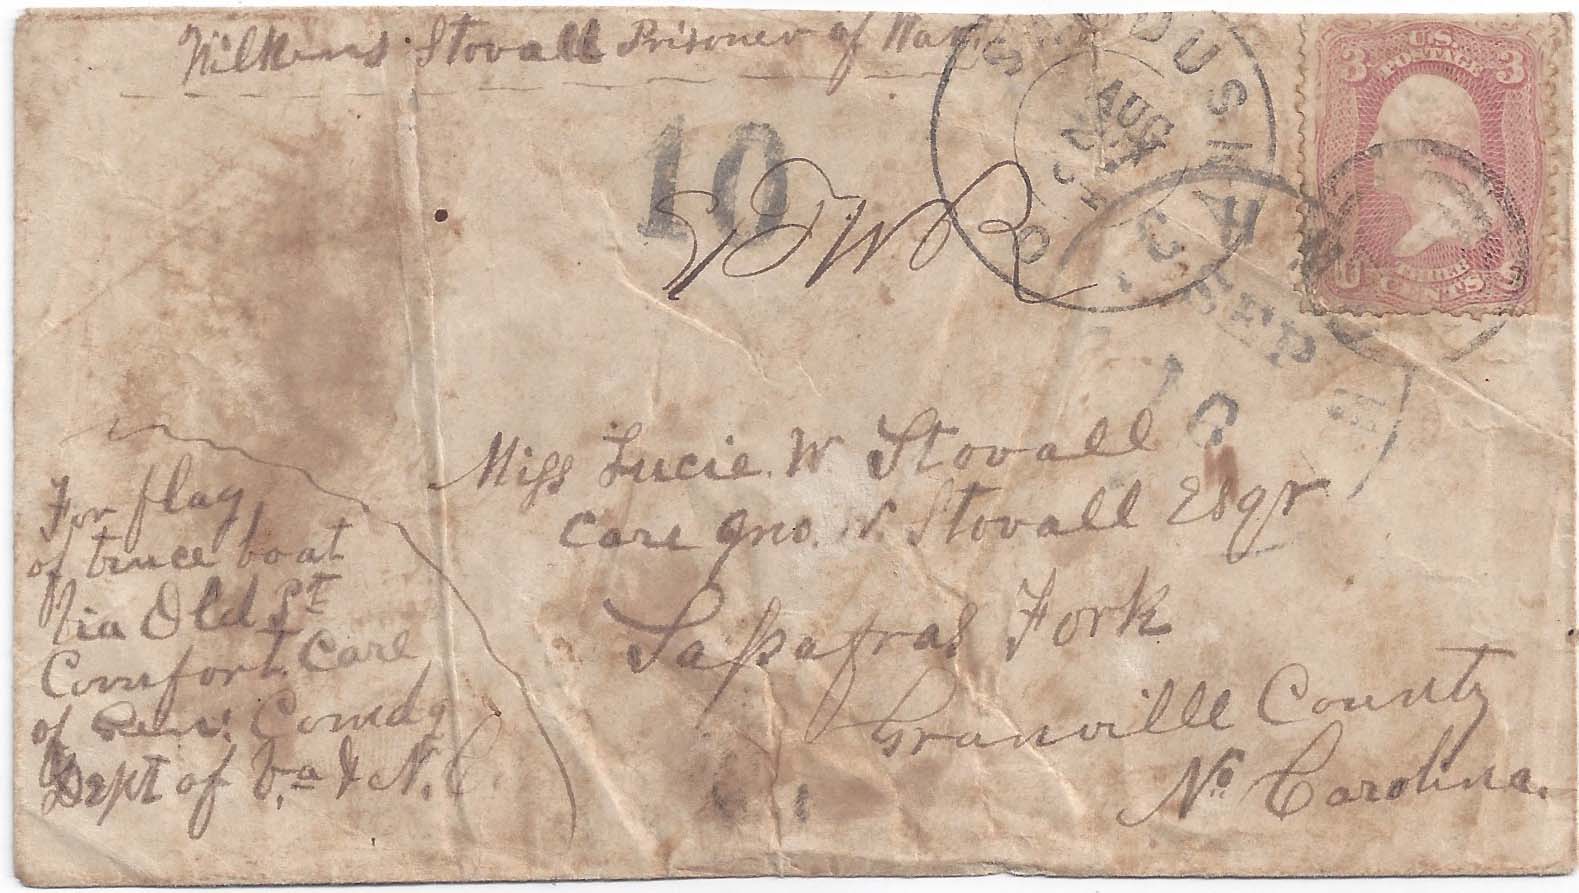 Wilkins Stovall Prisoner of War
SANDUSKY
O
AUG
U.S.
3 POSTAGE 3
THREE
U CENTS S
10
SEP
10
Miss Lucie W Stovall
Care Jno. W. Stovall Esqr
Sassafras Fork
Granville County
No Carolina.
For flag
of truce boat
Via Old Pt
Comfort. Care
of Genl. Comdg
Dept of Va & N. C.